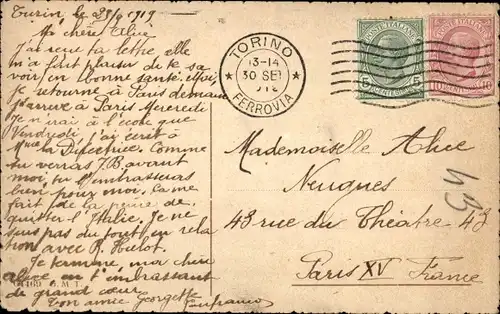 Turin, le 29/9 1919
Ma chère Alice
J'ai reçu ta lettre, elle
m'a fait plaisir de te sa
voir en bonne santé. Moi,
je retourne à Paris demain
J'arrive à Paris Mercredi
Je n'irai à l'école que
Vendredi. J'ai écrit à
Mme la Directrice. Comme
tu verras J.B avant
moi, tu l'embrasseras
bien pour moi, ça me
fait de la peine de
quitter l'Italie. Je ne
suis pas du tout en rela
tion avec P. Hulot.
Je termine, ma chère
alice en t'embrassant
de grand cœur
Ton amie Georgette
469 G.M.T.
TORINO
13-14
30 SET
FERROVIA
POSTE ITALIANE
5
5
POSTE ITALIANE
10
10
Mademoiselle Alice
Neugnes
43 rue du Théatre 43
Paris XV France
43